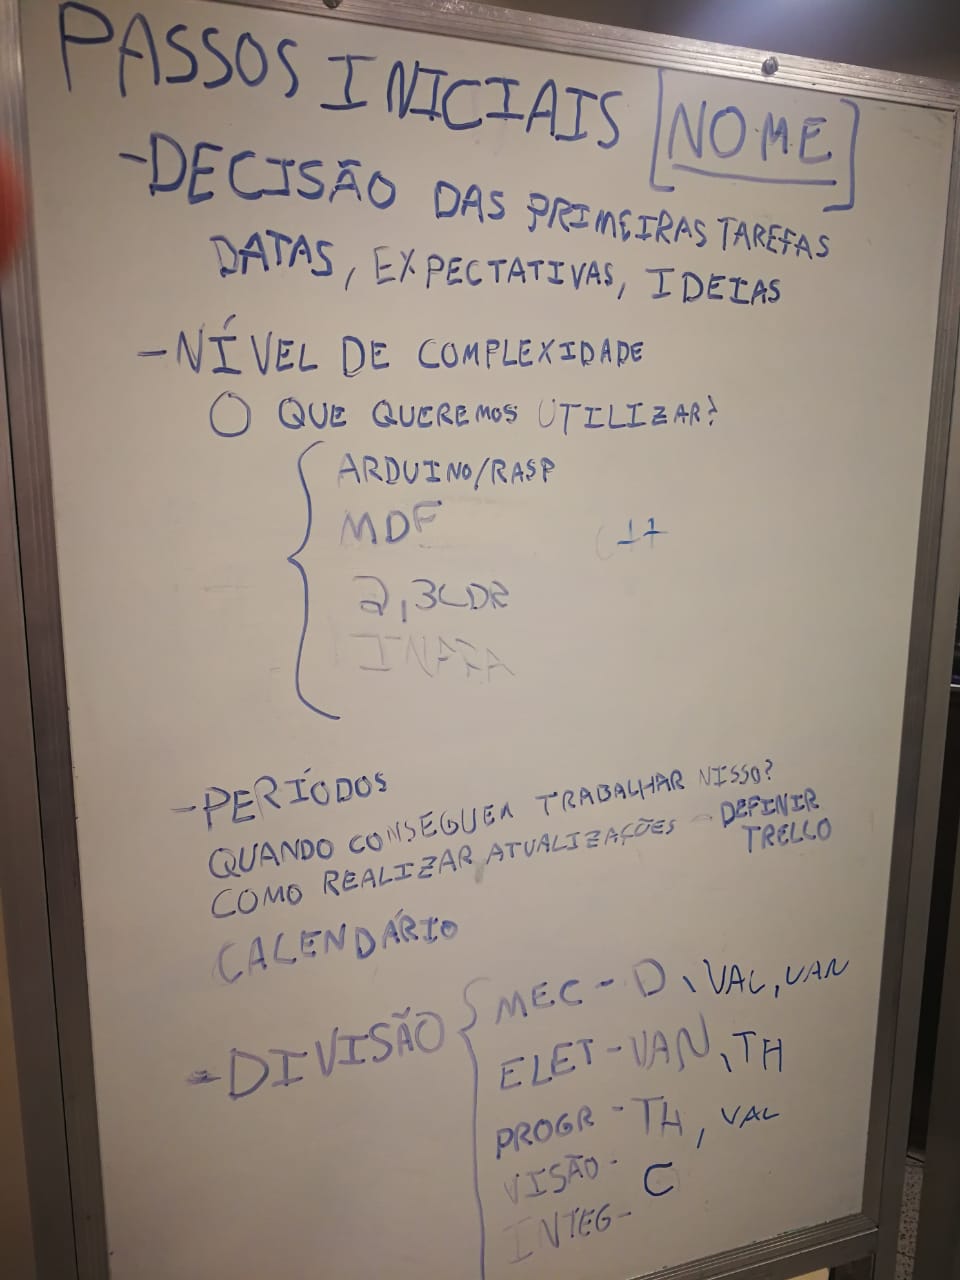 PASSOS INICIAIS [NOME]
-DECISÃO DAS PRIMEIRAS TAREFAS
DATAS, EXPECTATIVAS, IDEIAS
-NÍVEL DE COMPLEXIDADE
O QUE QUEREMOS UTILIZAR?
ARDUINO/RASP
MDF
C++
2,3 LDR
-PERÍODOS
QUANDO CONSEGUEM TRABALHAR NISSO?
COMO REALIZAR ATUALIZAÇÕES - DEFINIR
TRELLO
CALENDÁRIO
-DIVISÃO
MEC - D, VAL, VAN
ELET - VAN, TH
PROGR - TH, VAL
VISÃO - C
INTEG -